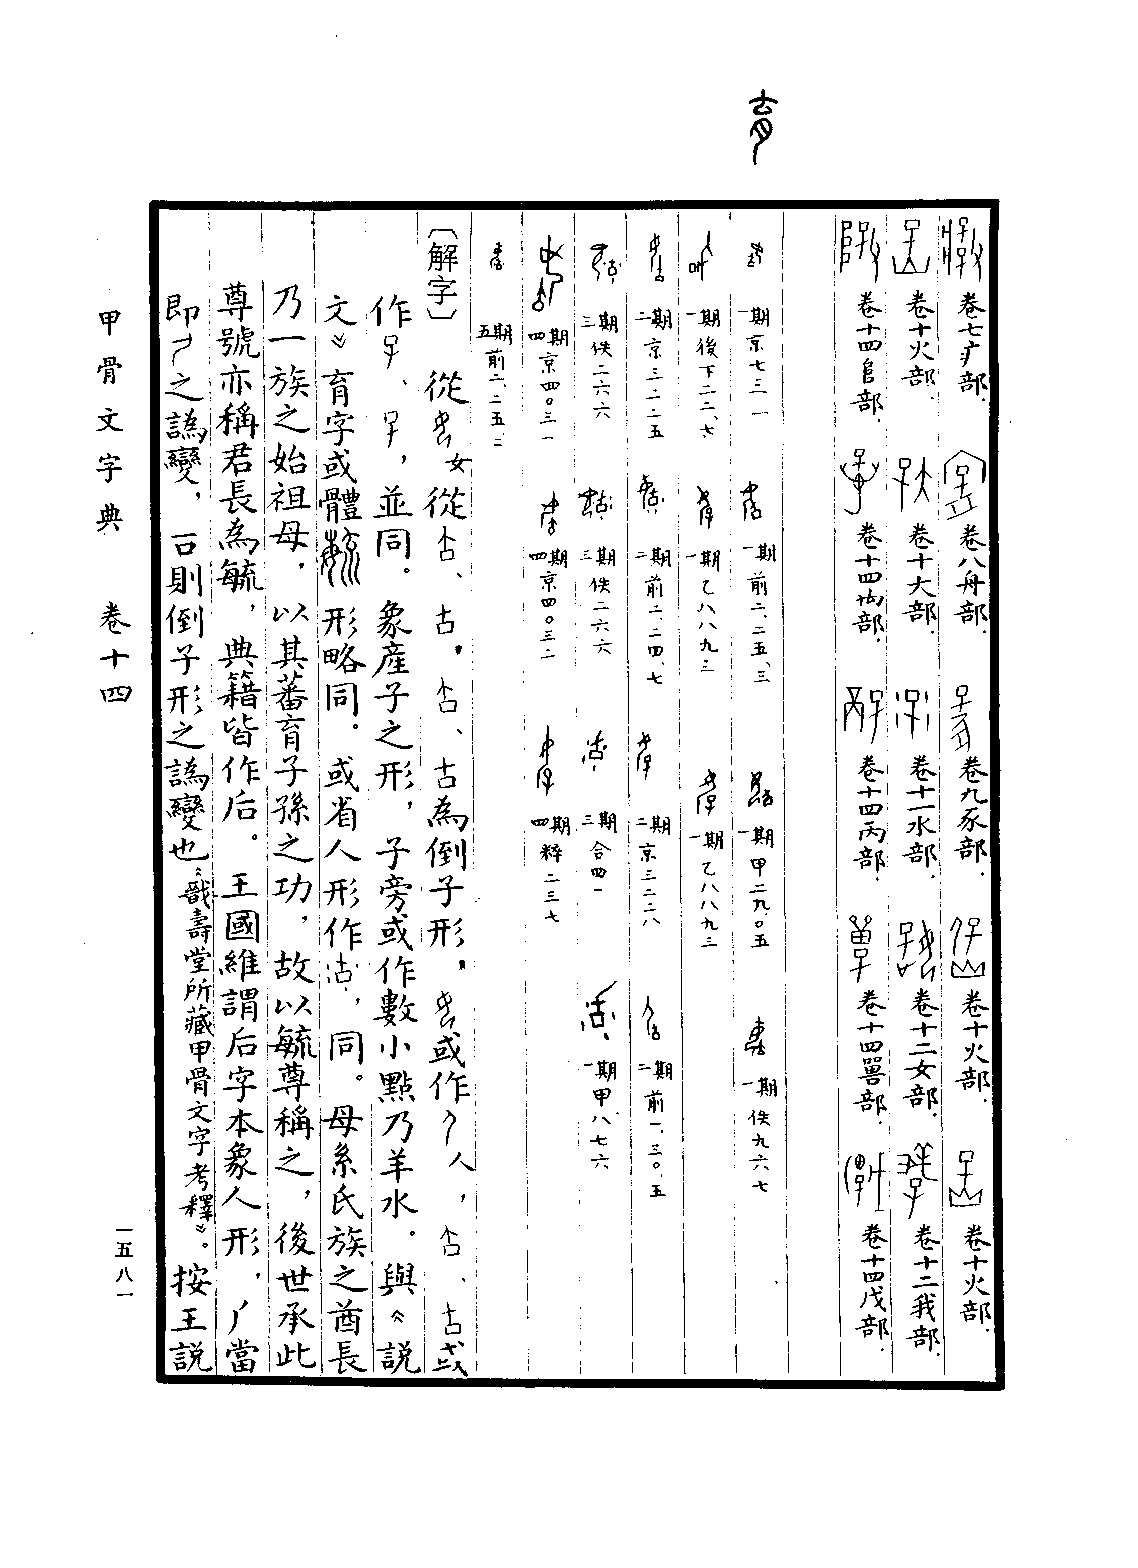 育
卷七疒部. 卷八舟部. 卷九豕部. 卷十火部. 卷十火部.
卷十火部. 卷十大部. 卷十一水部. 卷十二女部. 卷十二我部.
卷十四𨸏部. 卷十四部. 卷十四丙部. 卷十四嘼部. 卷十四戊部.
一期京七三一 一期前二、二五、三 一期甲二九〇五 一期佚九六七
一期後下二二、七 一期乙八八九三 一期乙八八九三
二期京三二二五 二期前二、二四、七 二期京三二二八 二期前一、三〇、五
三期佚二六六 三期佚二六六 三期合四一 一期甲八七六
四期京四〇三一 四期京四〇三二 四期粹二三七
五期前二、二五、三
〔解字〕 從女從、、、為倒子形，或作人，、或
作、，並同。象產子之形，子旁或作數小點乃羊水。與《說
文》育字或體形略同。或省人形作，同。母系氏族之酋長
乃一族之始祖母，以其蕃育子孫之功，故以毓尊稱之，後世承此
尊號亦稱君長為毓，典籍皆作后。王國維謂后字本象人形，當
即之譌變，則倒子形之譌變也《戩壽堂所藏甲骨文字考釋》。按王說
甲骨文字典 卷十四
一五八一